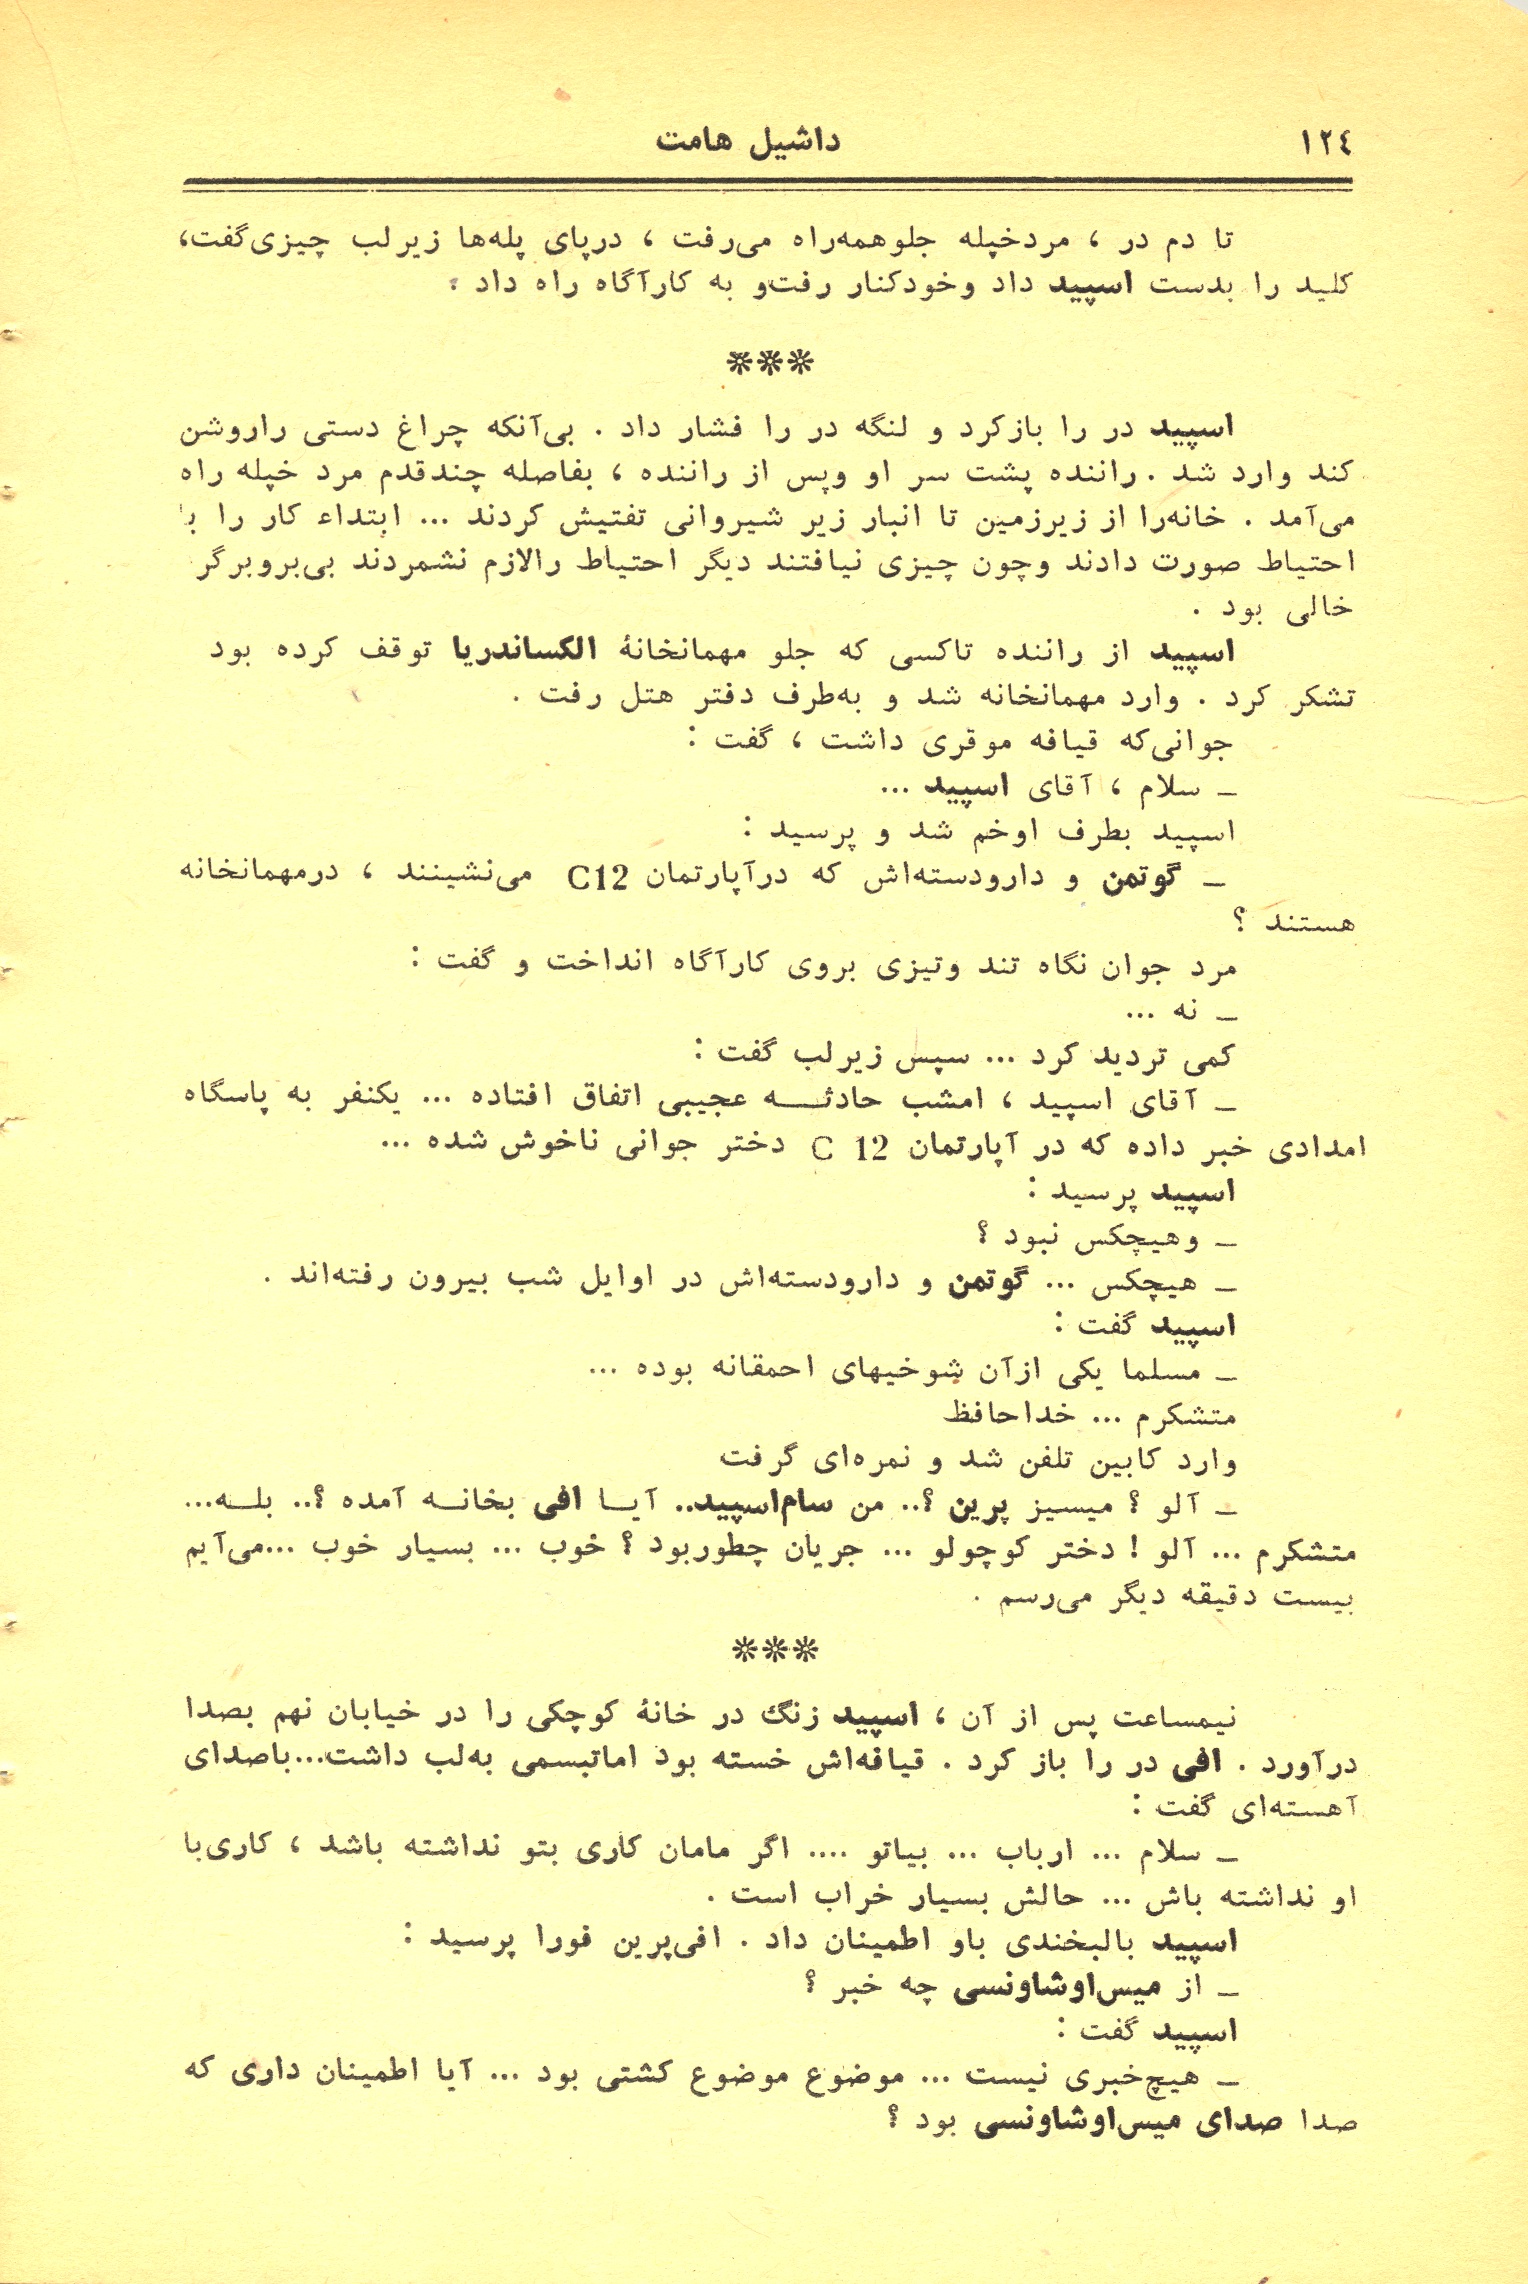 ١٢٤
داشیل هامت
تا دم در ، مردخپله جلوهمه‌راه می‌رفت ، درپای پله‌ها زیرلب چیزی‌گفت،
کلید را بدست اسپید داد وخودکنار رفت‌و به کارآگاه راه داد .
***
اسپید در را بازکرد و لنگه در را فشار داد . بی‌آنکه چراغ دستی راروشن
کند وارد شد . راننده پشت سر او وپس از راننده ، بفاصله چندقدم مرد خپله راه
می‌آمد . خانه‌را از زیرزمین تا انبار زیر شیروانی تفتیش کردند ... ابتداء کار را با
احتیاط صورت دادند وچون چیزی نیافتند دیگر احتیاط رالازم نشمردند بی‌بروبرگر
خالی بود .
اسپید از راننده تاکسی که جلو مهمانخانهٔ الکساندریا توقف کرده بود
تشکر کرد . وارد مهمانخانه شد و به‌طرف دفتر هتل رفت .
جوانی‌که قیافه موقری داشت ، گفت :
ـ سلام ، آقای اسپید ...
اسپید بطرف اوخم شد و پرسید :
ـ گوتمن و دارودسته‌اش که درآپارتمان C12 می‌نشینند ، درمهمانخانه
هستند ؟
مرد جوان نگاه تند وتیزی بروی کارآگاه انداخت و گفت :
ـ نه ...
کمی تردید کرد ... سپس زیرلب گفت :
ـ آقای اسپید ، امشب حادثـــه عجیبی اتفاق افتاده ... یکنفر به پاسگاه
امدادی خبر داده که در آپارتمان C 12 دختر جوانی ناخوش شده ...
اسپید پرسید :
ـ وهیچکس نبود ؟
ـ هیچکس ... گوتمن و دارودسته‌اش در اوایل شب بیرون رفته‌اند .
اسپید گفت :
ـ مسلما یکی ازآن شوخیهای احمقانه بوده ...
متشکرم ... خداحافظ
وارد کابین تلفن شد و نمره‌ای گرفت
ـ آلو ؟ میسیز پرین ؟.. من سام‌اسپید.. آیـا افی بخانـه آمده ؟.. بلـه...
متشکرم ... آلو ! دختر کوچولو ... جریان چطوربود ؟ خوب ... بسیار خوب ...می‌آیم
بیست دقیقه دیگر می‌رسم .
***
نیمساعت پس از آن ، اسپید زنگ در خانهٔ کوچکی را در خیابان نهم بصدا
درآورد . افی در را باز کرد . قیافه‌اش خسته بود اماتبسمی به‌لب داشت...باصدای
آهسته‌ای گفت :
ـ سلام ... ارباب ... بیاتو .... اگر مامان کاری بتو نداشته باشد ، کاری‌با
او نداشته باش ... حالش بسیار خراب است .
اسپید بالبخندی باو اطمینان داد . افی‌پرین فورا پرسید :
ـ از میس‌اوشاونسی چه خبر ؟
اسپید گفت :
ـ هیچ‌خبری نیست ... موضوع موضوع کشتی بود ... آیا اطمینان داری که
صدا صدای میس‌اوشاونسی بود ؟